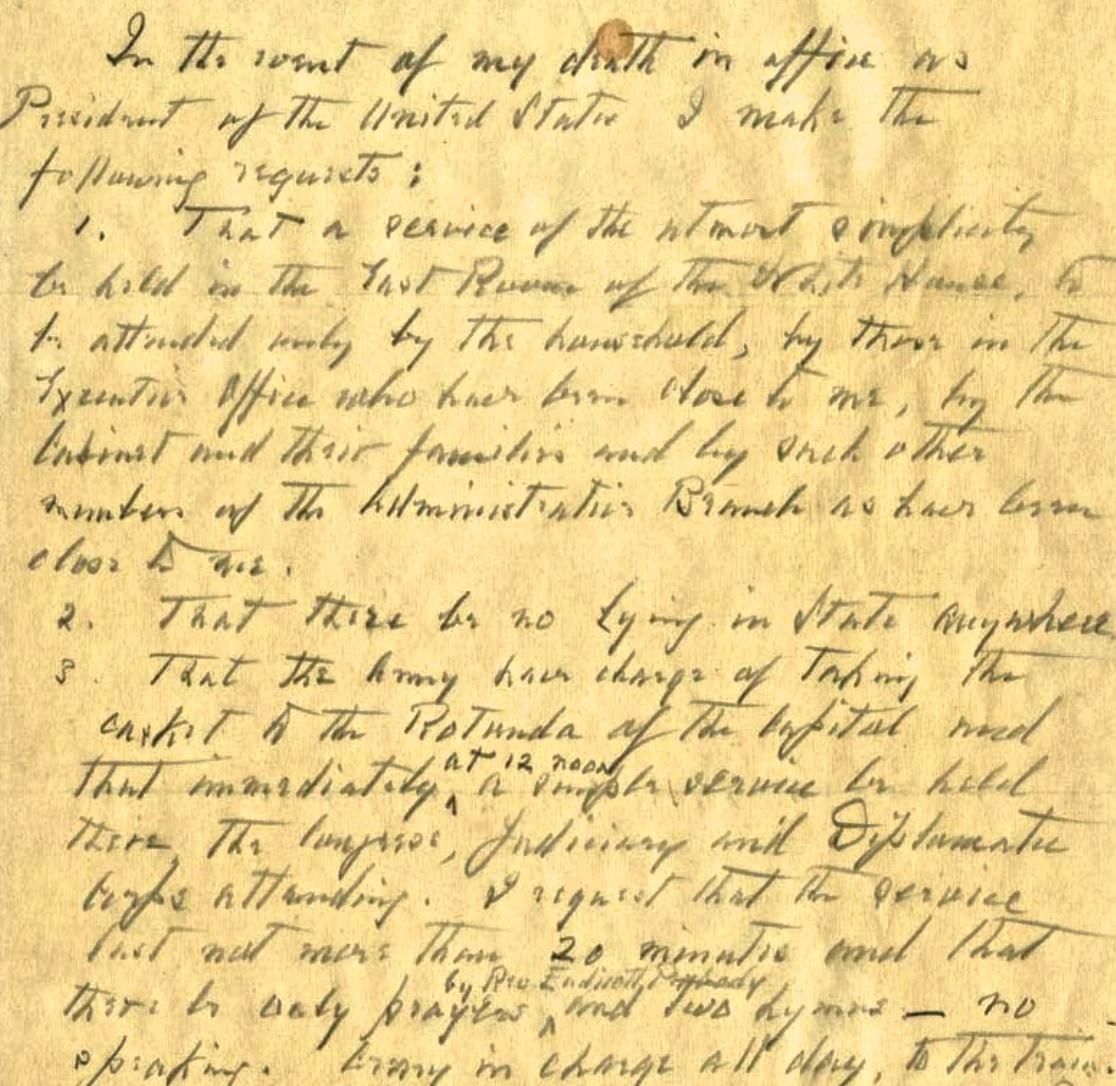 In the event of my death in office as
President of the United States I make the
following requests:
1. That a service of the utmost simplicity
be held in the East Room of the White House, to
be attended only by the household, by those in the
Executive Office who have been close to me, by the
Cabinet and their families and by such other
members of the Administrative Branch as have been
close to me.
2. That there be no lying in State anywhere
3. That the Army have charge of taking the
casket to the Rotunda of the Capitol and
at 12 noon
that immediately ^ a simple service be held
there, the Congress, Judiciary and Diplomatic
Corps attending. I request that the service
last not more than 20 minutes and that
by Rev Endicott Peabody
there be only prayers ^ and two hymns — no
speaking. Army in charge all day, to the train.